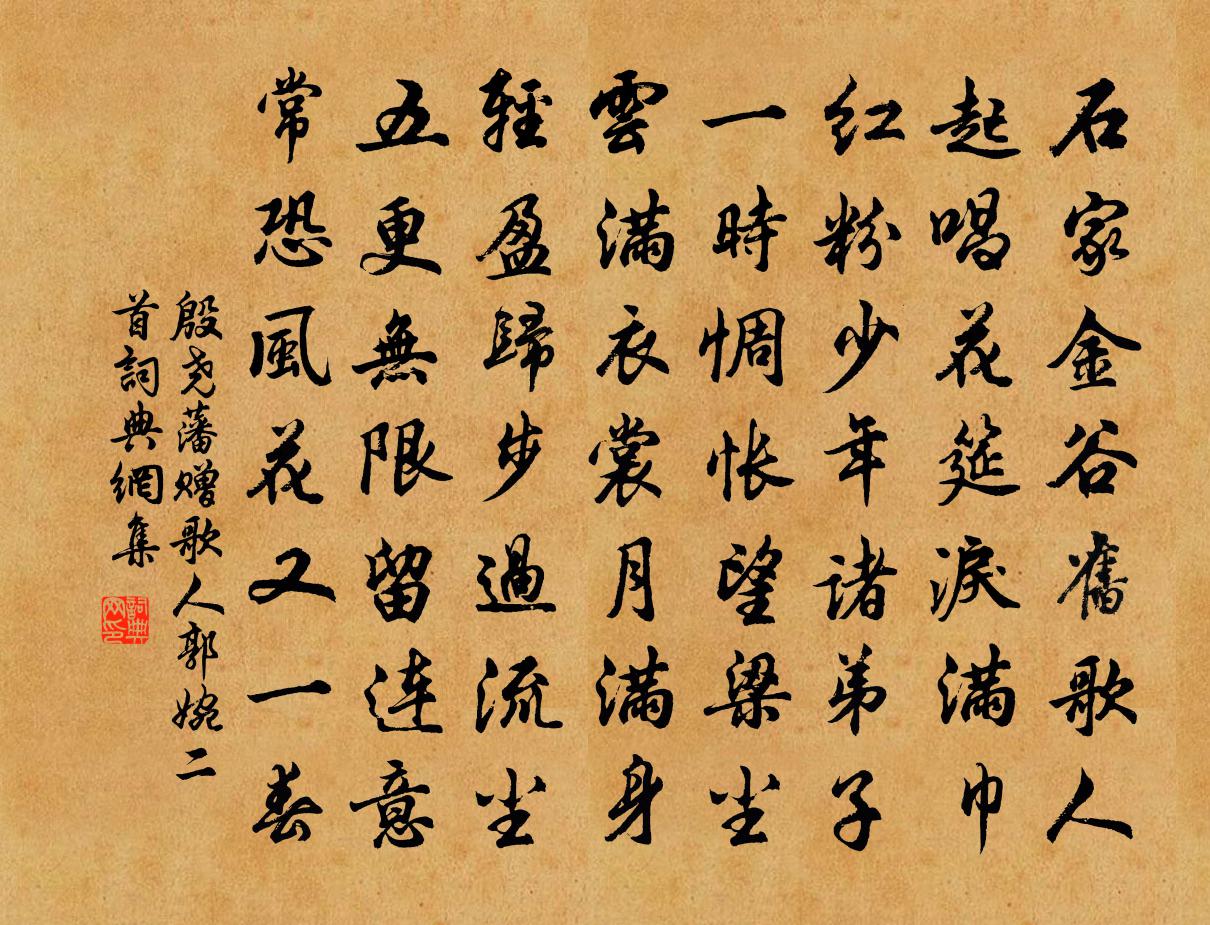 石家金谷舊歌人
起唱花筵淚滿巾
紅粉少年諸弟子
一時惆悵望梁尘
雲滿衣裳月滿身
輕盈歸步過流尘
五更無限留連意
常恐風花又一春
殷尧藩赠歌人郭婉二
首詞典網集
詞典
网印